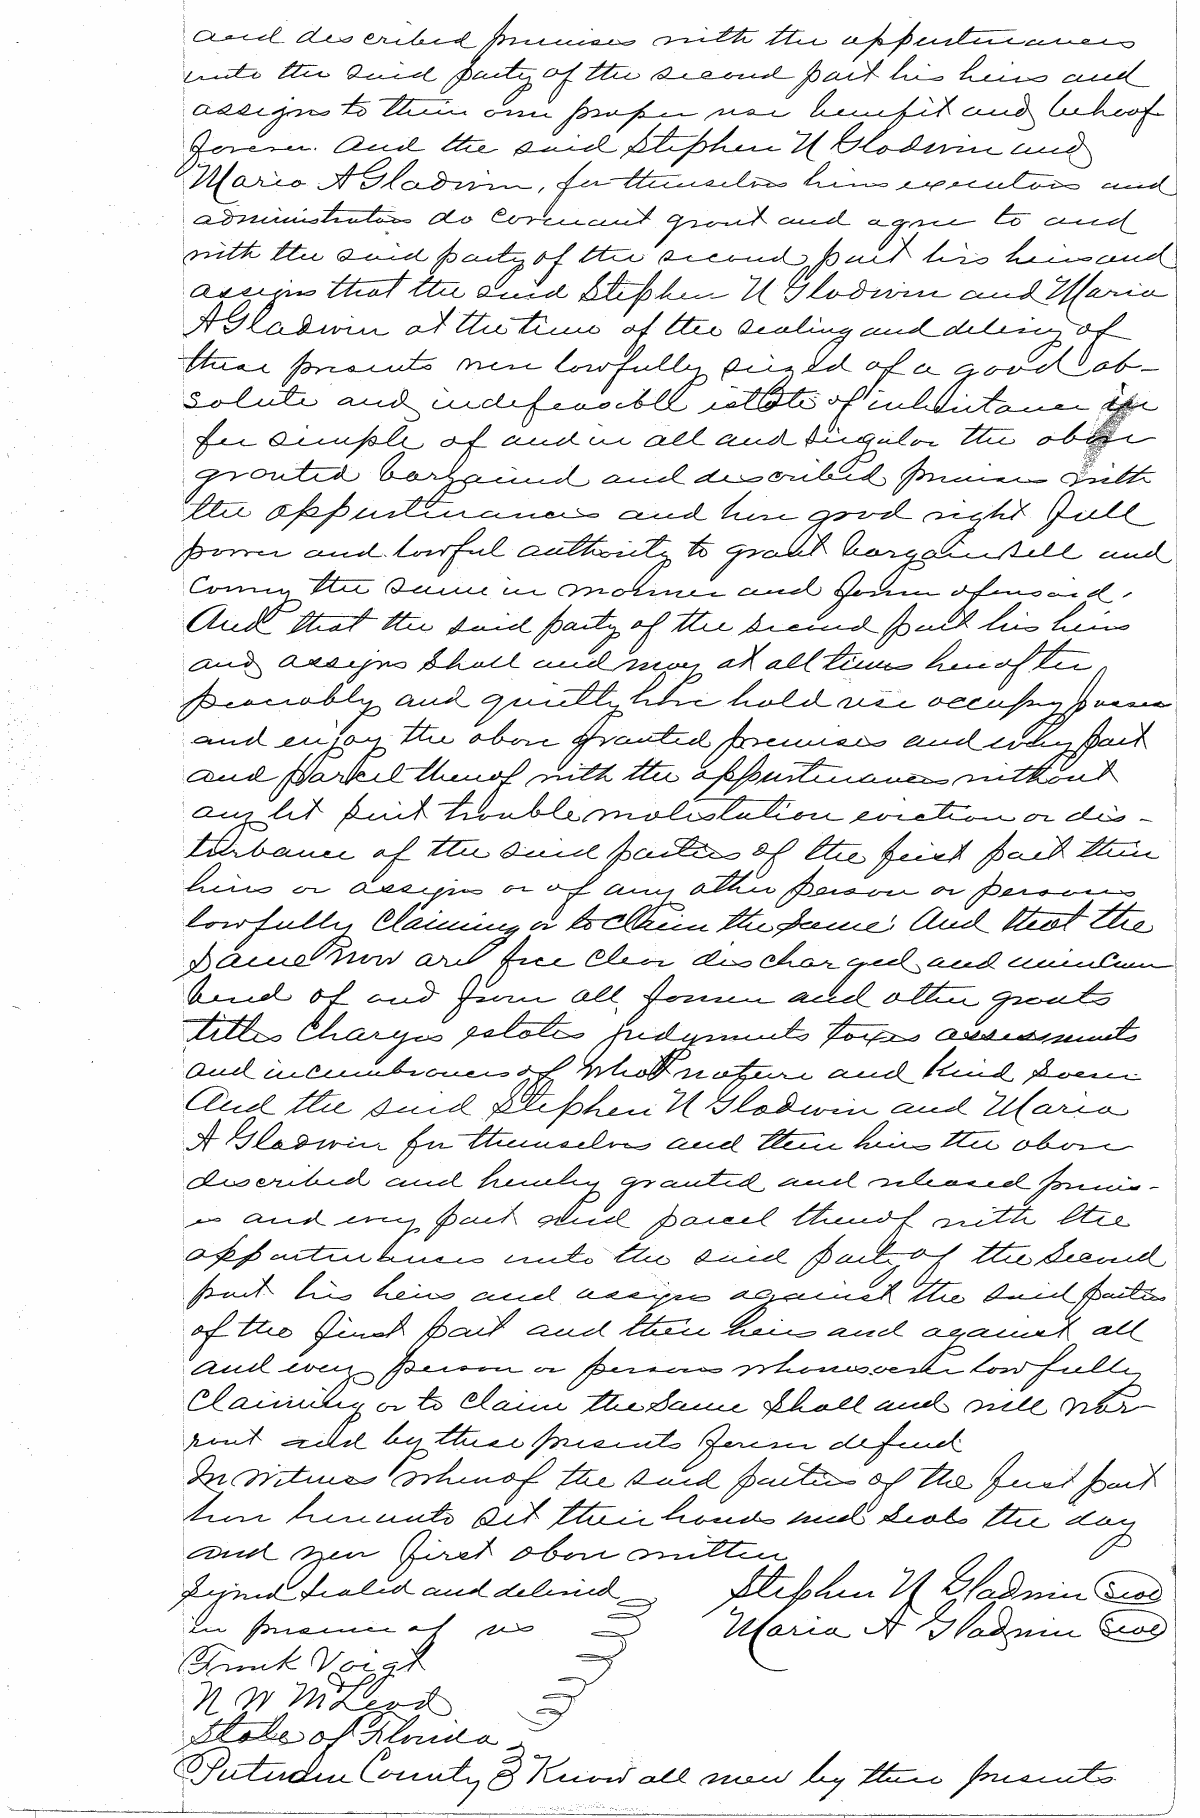 and described premises with the appurtenances
unto the said party of the second part his heirs and
assigns to their own proper use benefit and behoof
forever. And the said Stephen N Gladwin and
Maria A Gladwin, for themselves heirs executors and
administrators do covenant grant and agree to and
with the said party of the second part his heirs and
assigns that the said Stephen N Gladwin and Maria
A Gladwin at the time of the sealing and delivery of
these presents were lawfully siezed of a good ab-
solute and indefeasible estate of inheritance in
fee simple of and in all and singular the above
granted bargained and described premises with
the appurtenances and have good right full
power and lawful authority to grant bargain sell and
convey the same in manner and form aforesaid.
And that the said party of the second part his heirs
and assigns shall and may at all times hereafter
peaceably and quietly have hold use occupy posses
and enjoy the above granted premises and every part
and parcel thereof with the appurtenances without
any let suit trouble molestation eviction or dis-
turbance of the said parties of the first part their
heirs or assigns or of any other person or persons
lawfully claiming or to claim the same. And that the
same now are free clear discharged and unincum
bered of and from all former and other grants
titles charges estates judgments taxes assessments
and incumbrances of what nature and kind soever
And the said Stephen N Gladwin and Maria
A Gladwin for themselves and their heirs the above
described and hereby granted and released premis-
es and every part and parcel thereof with the
appurtenances unto the said party of the second
part his heirs and assigns against the said parties
of the first part and their heirs and against all
and every person or persons whomsoever lawfully
claiming or to claim the same shall and will war-
rant and by these presents forever defend
In witness whereof the said parties of the first part
have hereunto set their hands and seals the day
and year first above written
Signed sealed and delivered Stephen N Gladwin Seal
in presence of us Maria A Gladwin Seal
Frank Voigt
N W McLeod
State of Florida
Putnam County Know all men by these presents